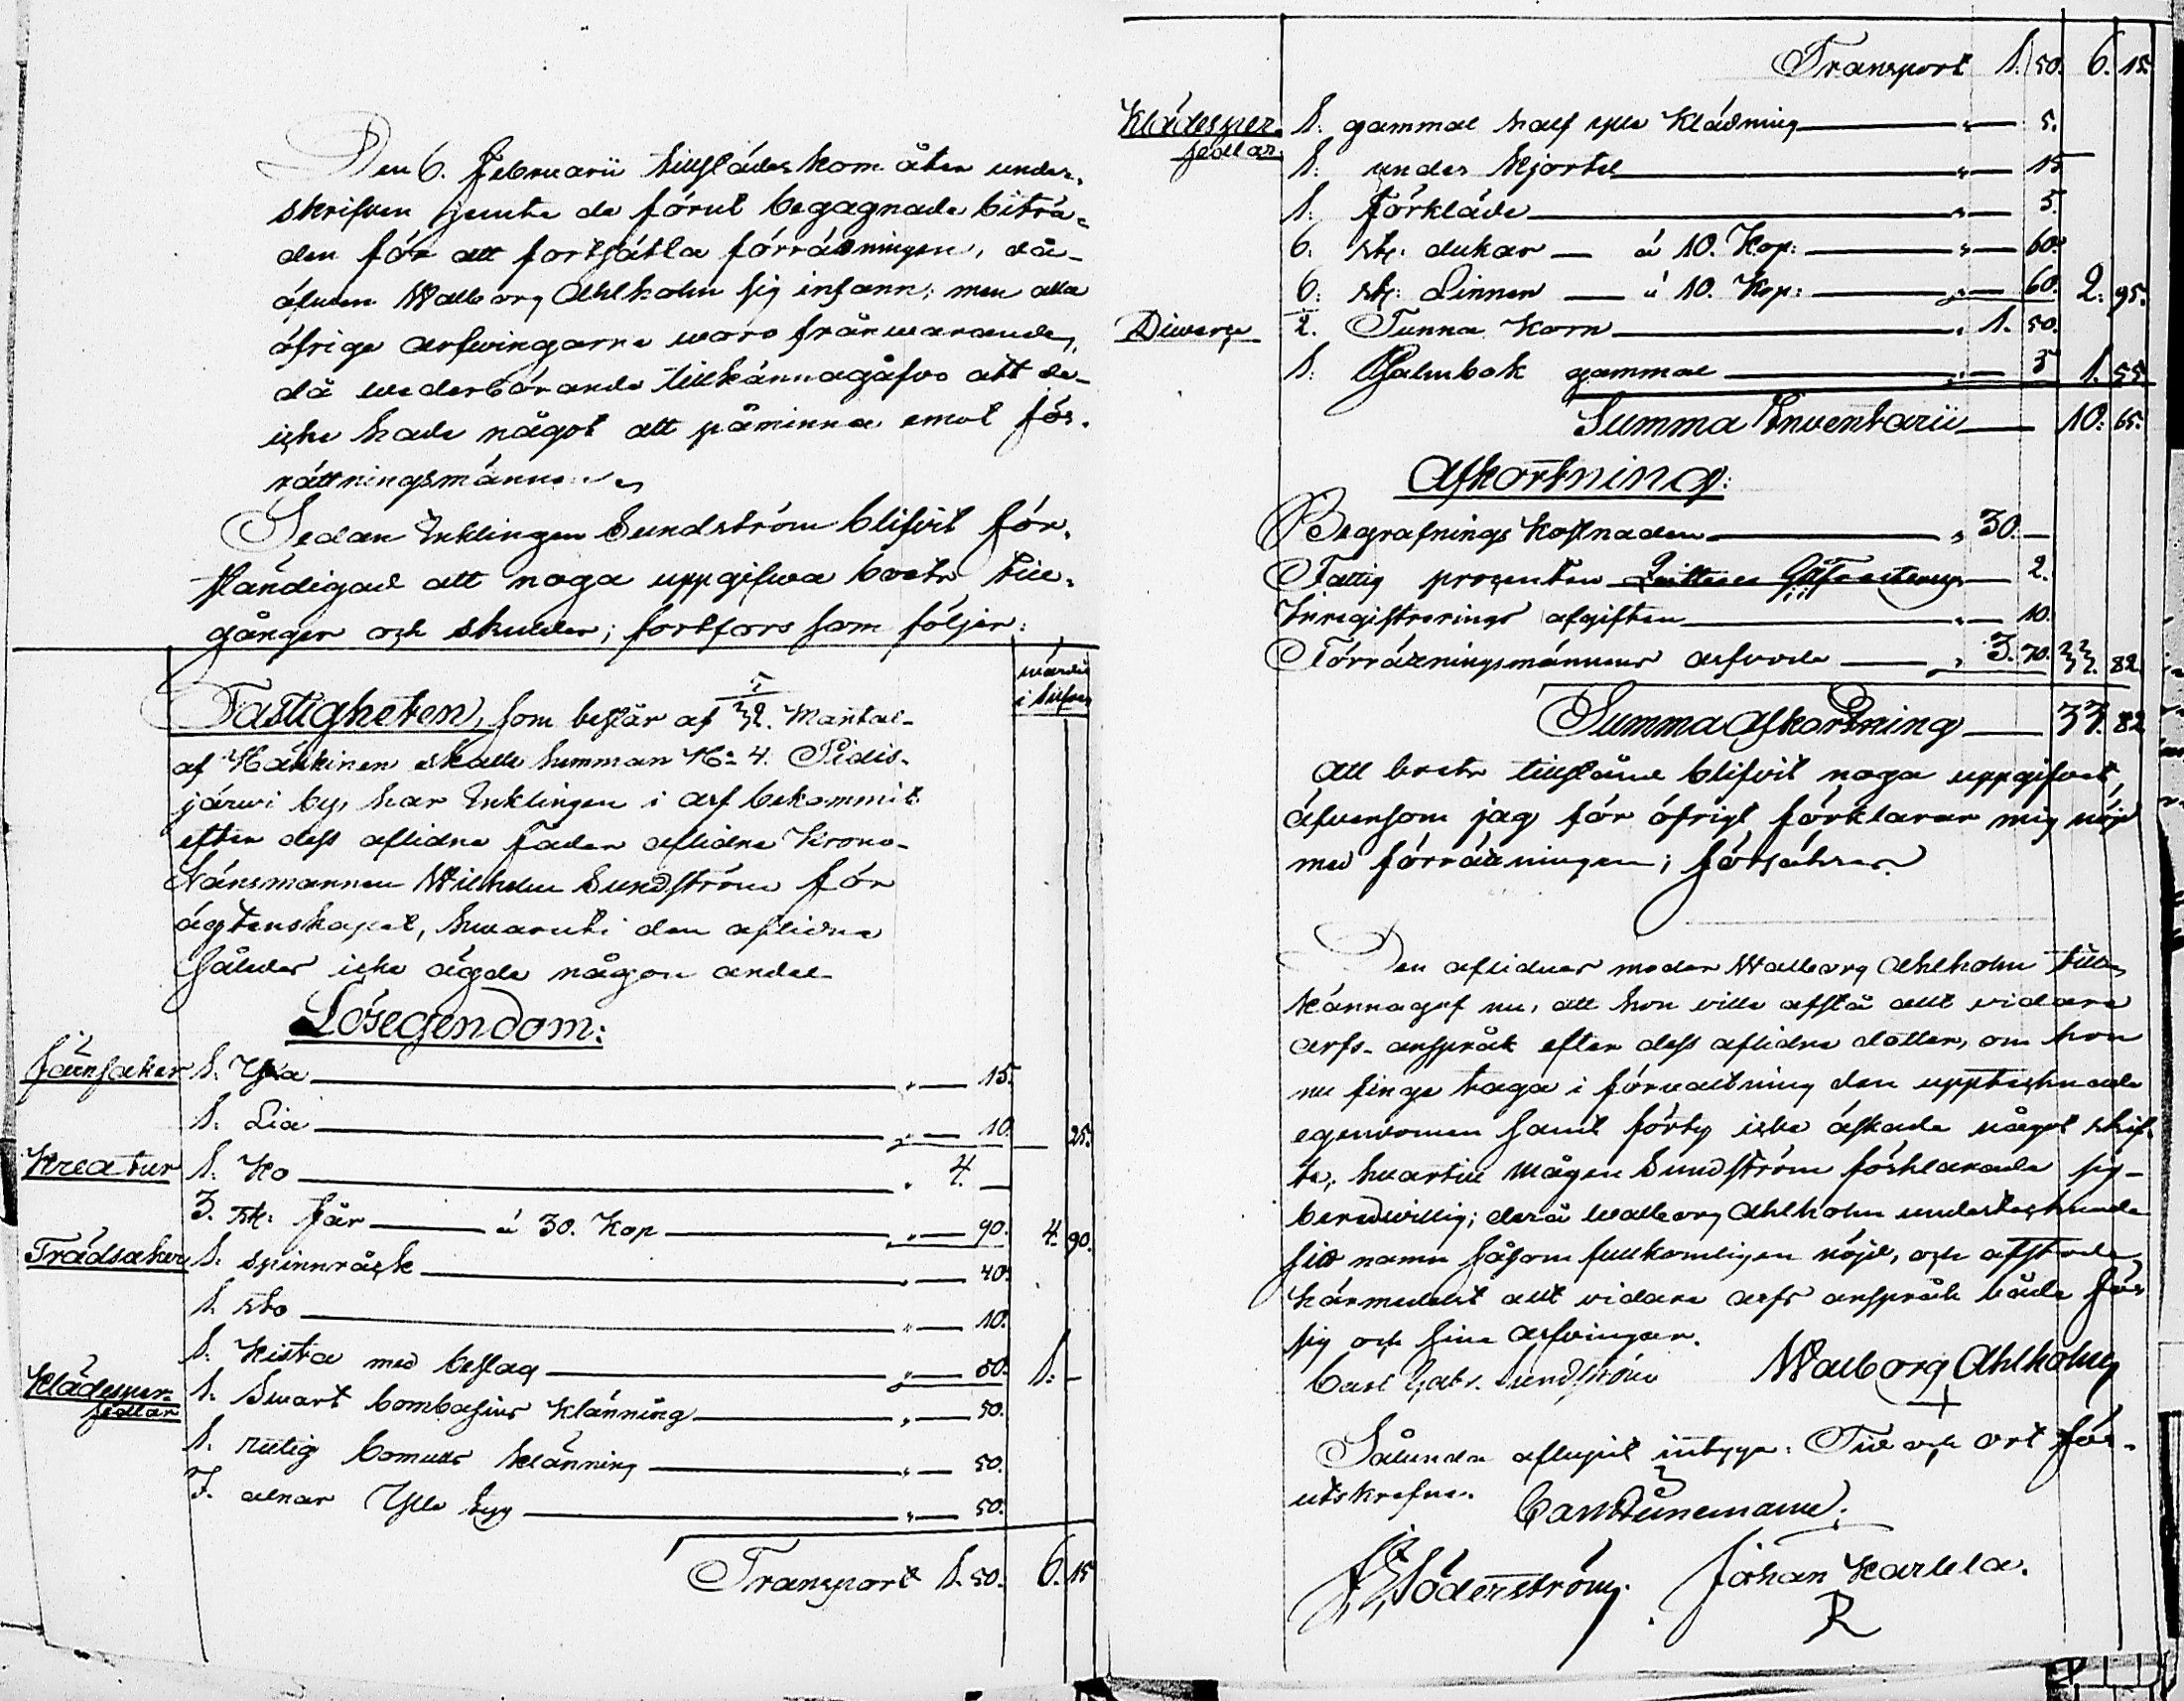 Den 6. Februarii tillstädes kom åter under-
skrifven jemte de förut begagnade biträ-
den för att fortsätta förrättningen, då
äfven Walborg Ahlholm sig infann; men alla
öfrige arfvingarne woro frånwarande,
då wederbörande tillkännagåfvo att de
icke hade något att påminna emot för-
rättningsmännen
Sedan Enklingen Sundström blifvit för-
ständigad att noga uppgifwa boets till-
gångar och skulder; fortfors som följer:
wärdet
i silfver
Fastigheten, som består af 5/32. Mantal
af Häkkinen skatte hemman No 4. Pidis-
järwi by, har Enklingen i arf bekommit
efter dess aflidne Fader aflidne Krono-
länsmannen Wilhelm Sundström för
ägtenskapet, hwaruti den aflidna
således icke ägde någon andel
Lösegendom:
Järnsaker 1: Yxa " — 15.
1: Lia " — 10. 25.
Kreatur 1: Ko " 4. —
3. st: får — á 30. Kop " — 90. 4. 90.
Trädsaker 1: spinnråck " — 40.
1. sto " — 10.
1: Kista med beslag " — 50. 1. —
Klädesper-
sedlar 1. Swart bombasins klänning " — 50.
1: rutig bomulls klänning " — 50.
7. alnar Ylle tyg " — 50.
Transport 1. 50. 6. 15
Transport 1. 50. 6. 15.
Klädesper-
sedlar 1: gammal half ylle Klädning " — 5.
1: under kjortel " — 15
1. förkläde " — 5.
6. st: dukar — á 10. Kop: " — 60.
6: st: Linnen — á 10. Kop: " — 60. 2. 95.
Diwerse 2. Tunna Korn " 1. 50.
1: Psalmbok gammal " — 5 1. 55
Summa Inventarii — 10: 65.
Afkortning:
Begrafnings kostnaden " 30. —
Fattig procenten — 2.
Inregistrerings afgiften " — 10.
Förrättningsmännens arfvode " 3. 70. 33. 82
Summa Afkortning — 33. 82
Att boets tillstånd blifvit noga uppgifvet,
äfvensom jag för öfrigt förklarar mig nöjd
med förrättningen; försäkras.
Den aflidnes moder Walborg Ahlholm till-
kännagaf nu, att hon ville afstå allt vidare
arfs-anspråk efter dess aflidne dotter, om hon
nu finge taga i förvaltning den upptecknade
egendomen samt förty icke äskade något skif-
te, hwartill Mågen Sundström förklarade sig
beredwillig; derå Walborg Ahlholm undertecknade
sitt namn såsom fullkomligen nöjd, och afstode
härmedelst allt vidare arfs anspråk både för
sig och sina arfvingar.
Carl Gabr. Sundström Walborg Ahlholm
Sålunda aflupit intyga: Tid och ort för-
utskrefne.
Carl Dünemann.
Söderström. Johan Karlela.